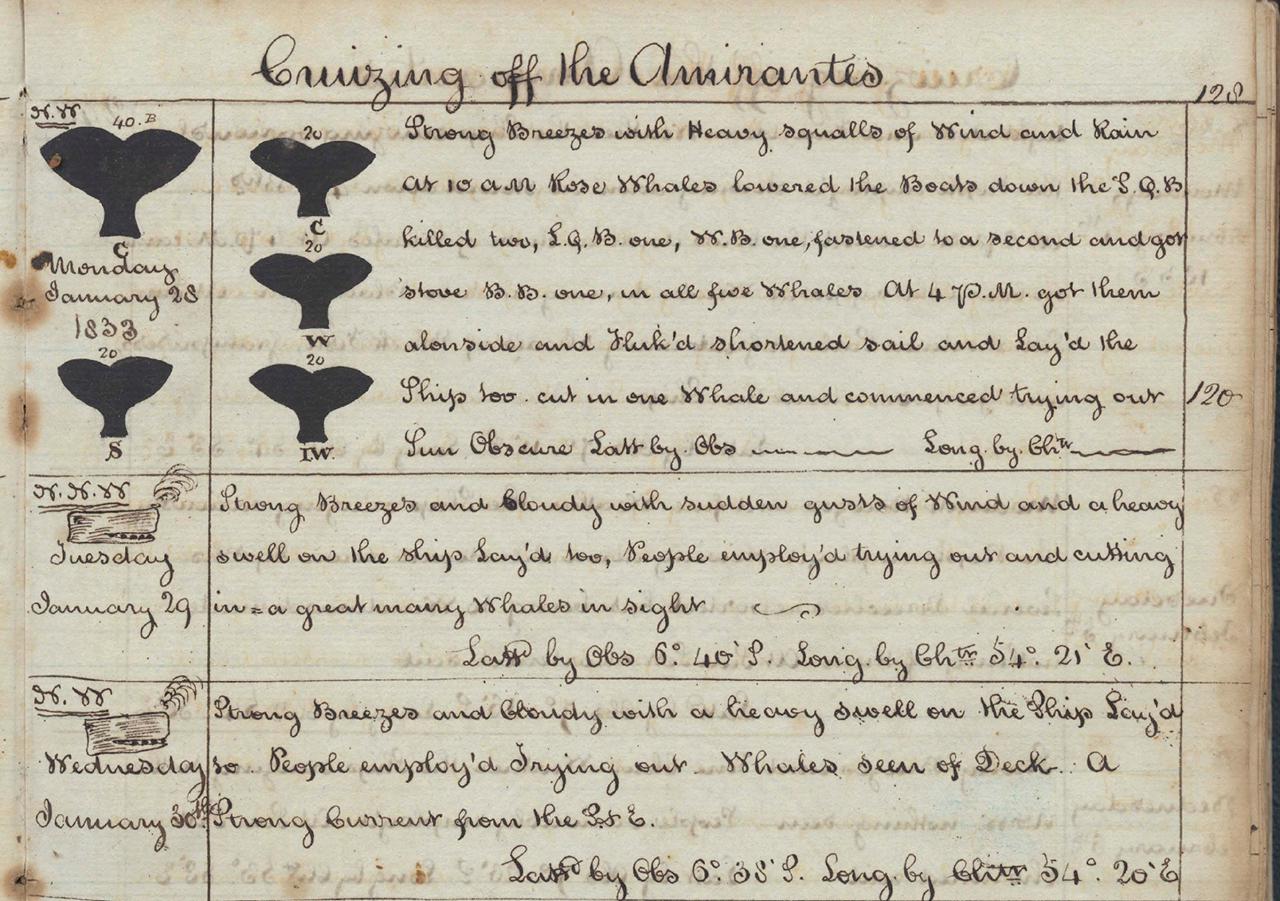 Cruizing off the Amirantes
128
N.W
40.B
C
Monday
January 28
1833
20
S
20
C
20
W
20
IW
Strong Breezes with Heavy squalls of Wind and Rain
At 10 AM Rose Whales lowered the Boats down the S.Q.B
killed two, L.Q.B. one, W.B. one, fastened to a second and got
stove B.B. one, in all five Whales At 4 P.M. got them
alonside and Fluk'd shortened sail and Lay'd the
Ship too. cut in one Whale and commenced trying out
120
Sun Obscure Latt by. Obs Long. by. Chtr
N.N.W
Tuesday
January 29
Strong Breezes and Cloudy with sudden gusts of Wind and a heavy
swell on the ship Lay'd too, People employ'd trying out and cutting
in = a great many Whales in sight
Lattd by Obs 6° 40' S. Long. by Chtr 54°. 21' E.
N.W
Wednesday
January 30th
Strong Breezes and Cloudy with a heavy swell on the Ship Lay'd
to People employ'd Trying out Whales seen of Deck. A
Strong Current from the S & E.
Lattd by Obs 6°. 38' S. Long. by Chtr 54°. 20' E